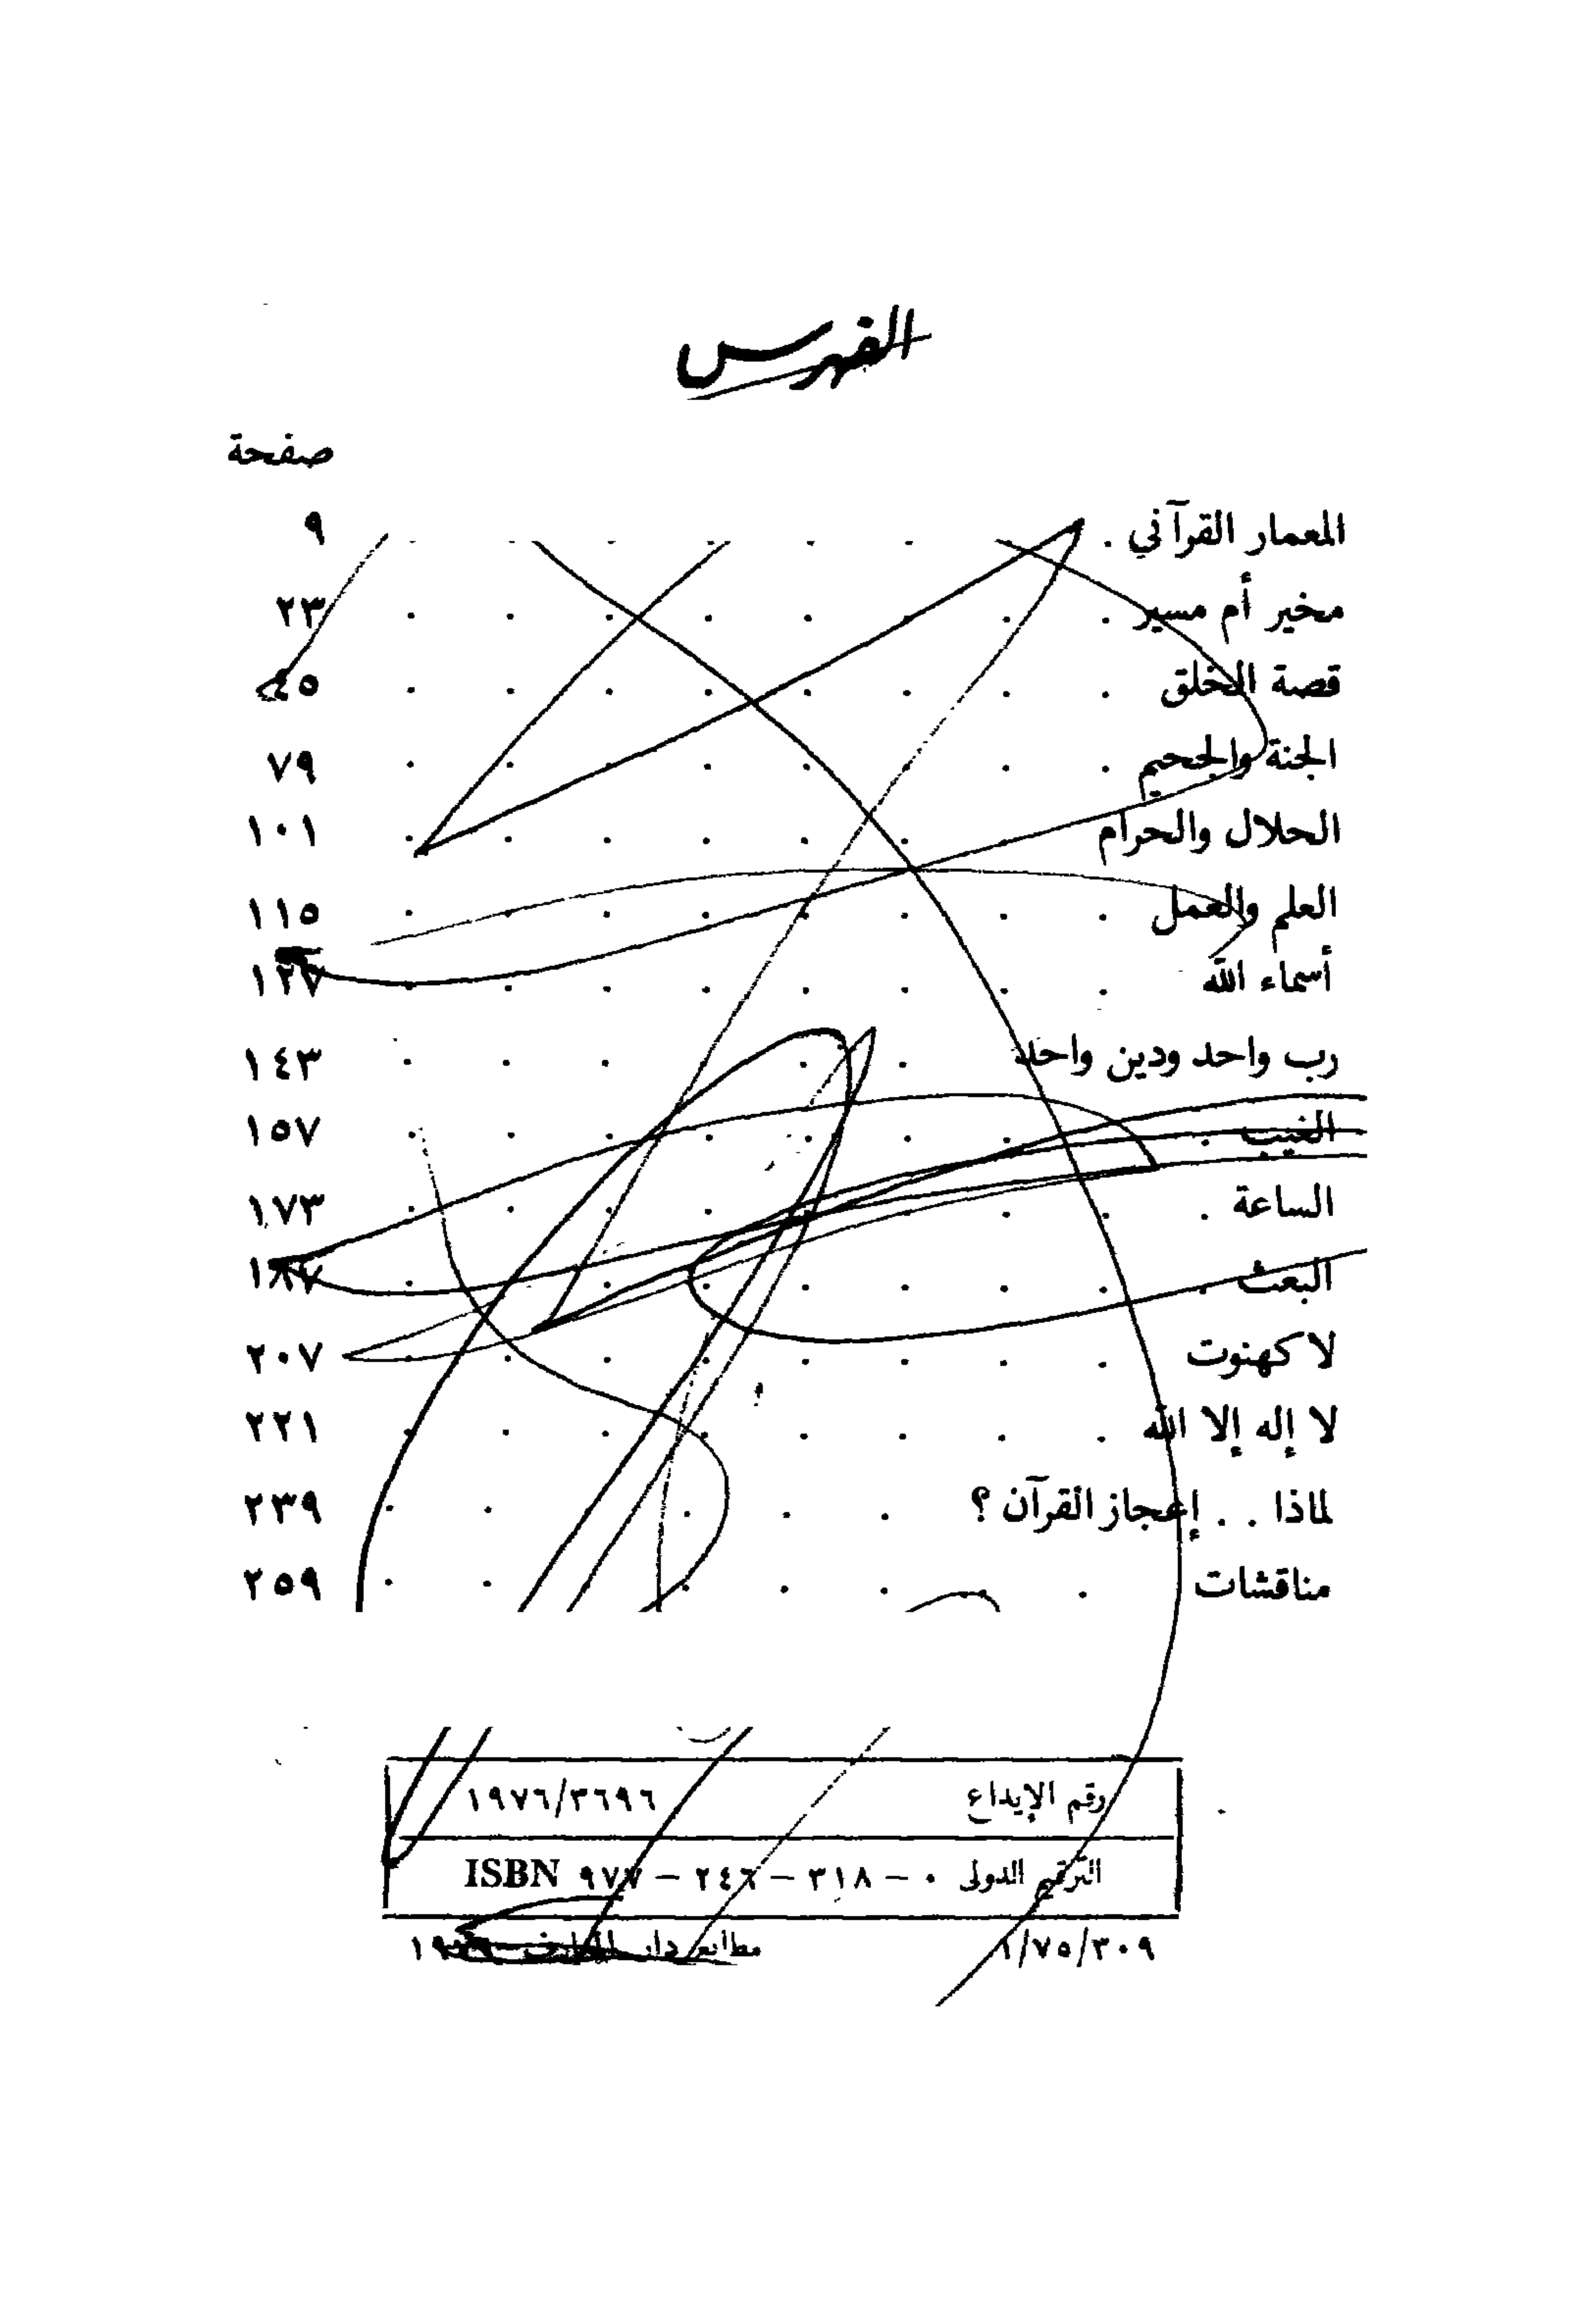 الفهرس
صفحة
المعمار القرآني . . . . . . . . ٩
مخير أم مسير . . . . . . . . ٢٣
قصة الخلق . . . . . . . . ٤٥
الجنة والجحيم . . . . . . . . ٧٩
الحلال والحرام . . . . . . ١٠١
العلم والعمل . . . . . . . . ١١٥
أسماء الله . . . . . . . . ١٢٧
رب واحد ودين واحد . . . . . ١٤٣
الغيب . . . . . . . . ١٥٧
الساعة . . . . . . . . . ١٧٣
البعث . . . . . . . . . ١٨٧
لا كهنوت . . . . . . . . ٢٠٧
لا إله إلا الله . . . . . . . . ٢٢١
لماذا . . إعجاز القرآن ؟ . . . . . ٢٣٩
مناقشات . . . . . . ٢٥٩
رقم الإيداع ١٩٧٦/٣٦٩٦
الترقيم الدولى ٠ – ٣١٨ – ٢٤٦ – ٩٧٧ ISBN
١/٧٥/٣٠٩
مطابع دار المعارف